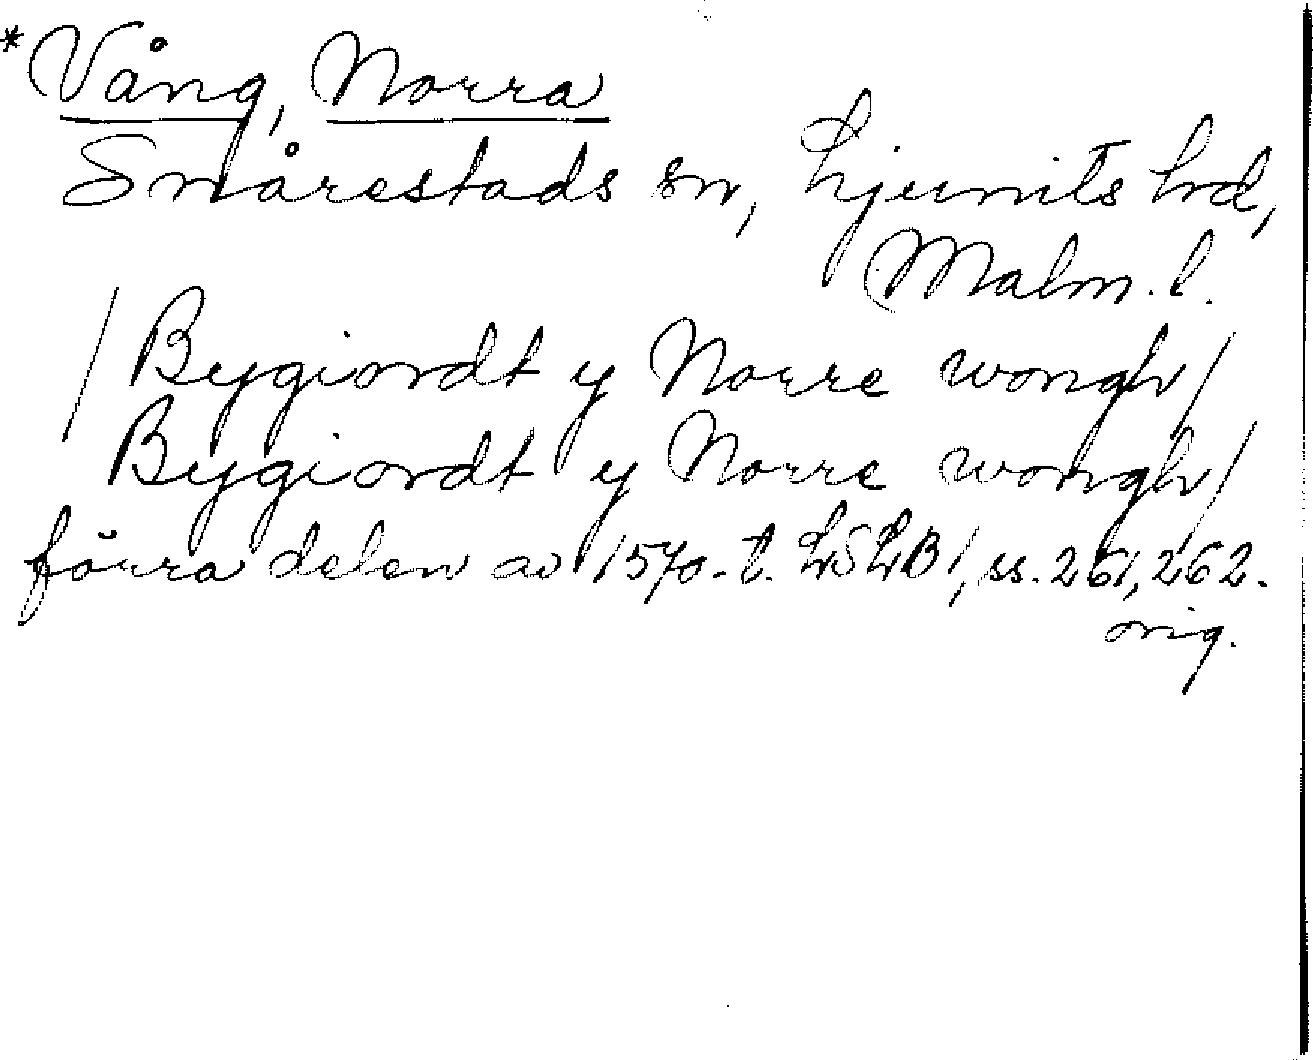 *Vång, Norra
Snårestads sn, Ljunits hd,
Malm. l.
/Bygiordt y Norre wongh/
Bygiordt y Norre wongh/
förra delen av 1570-t. LSLB 1, ss. 261, 262.
orig.